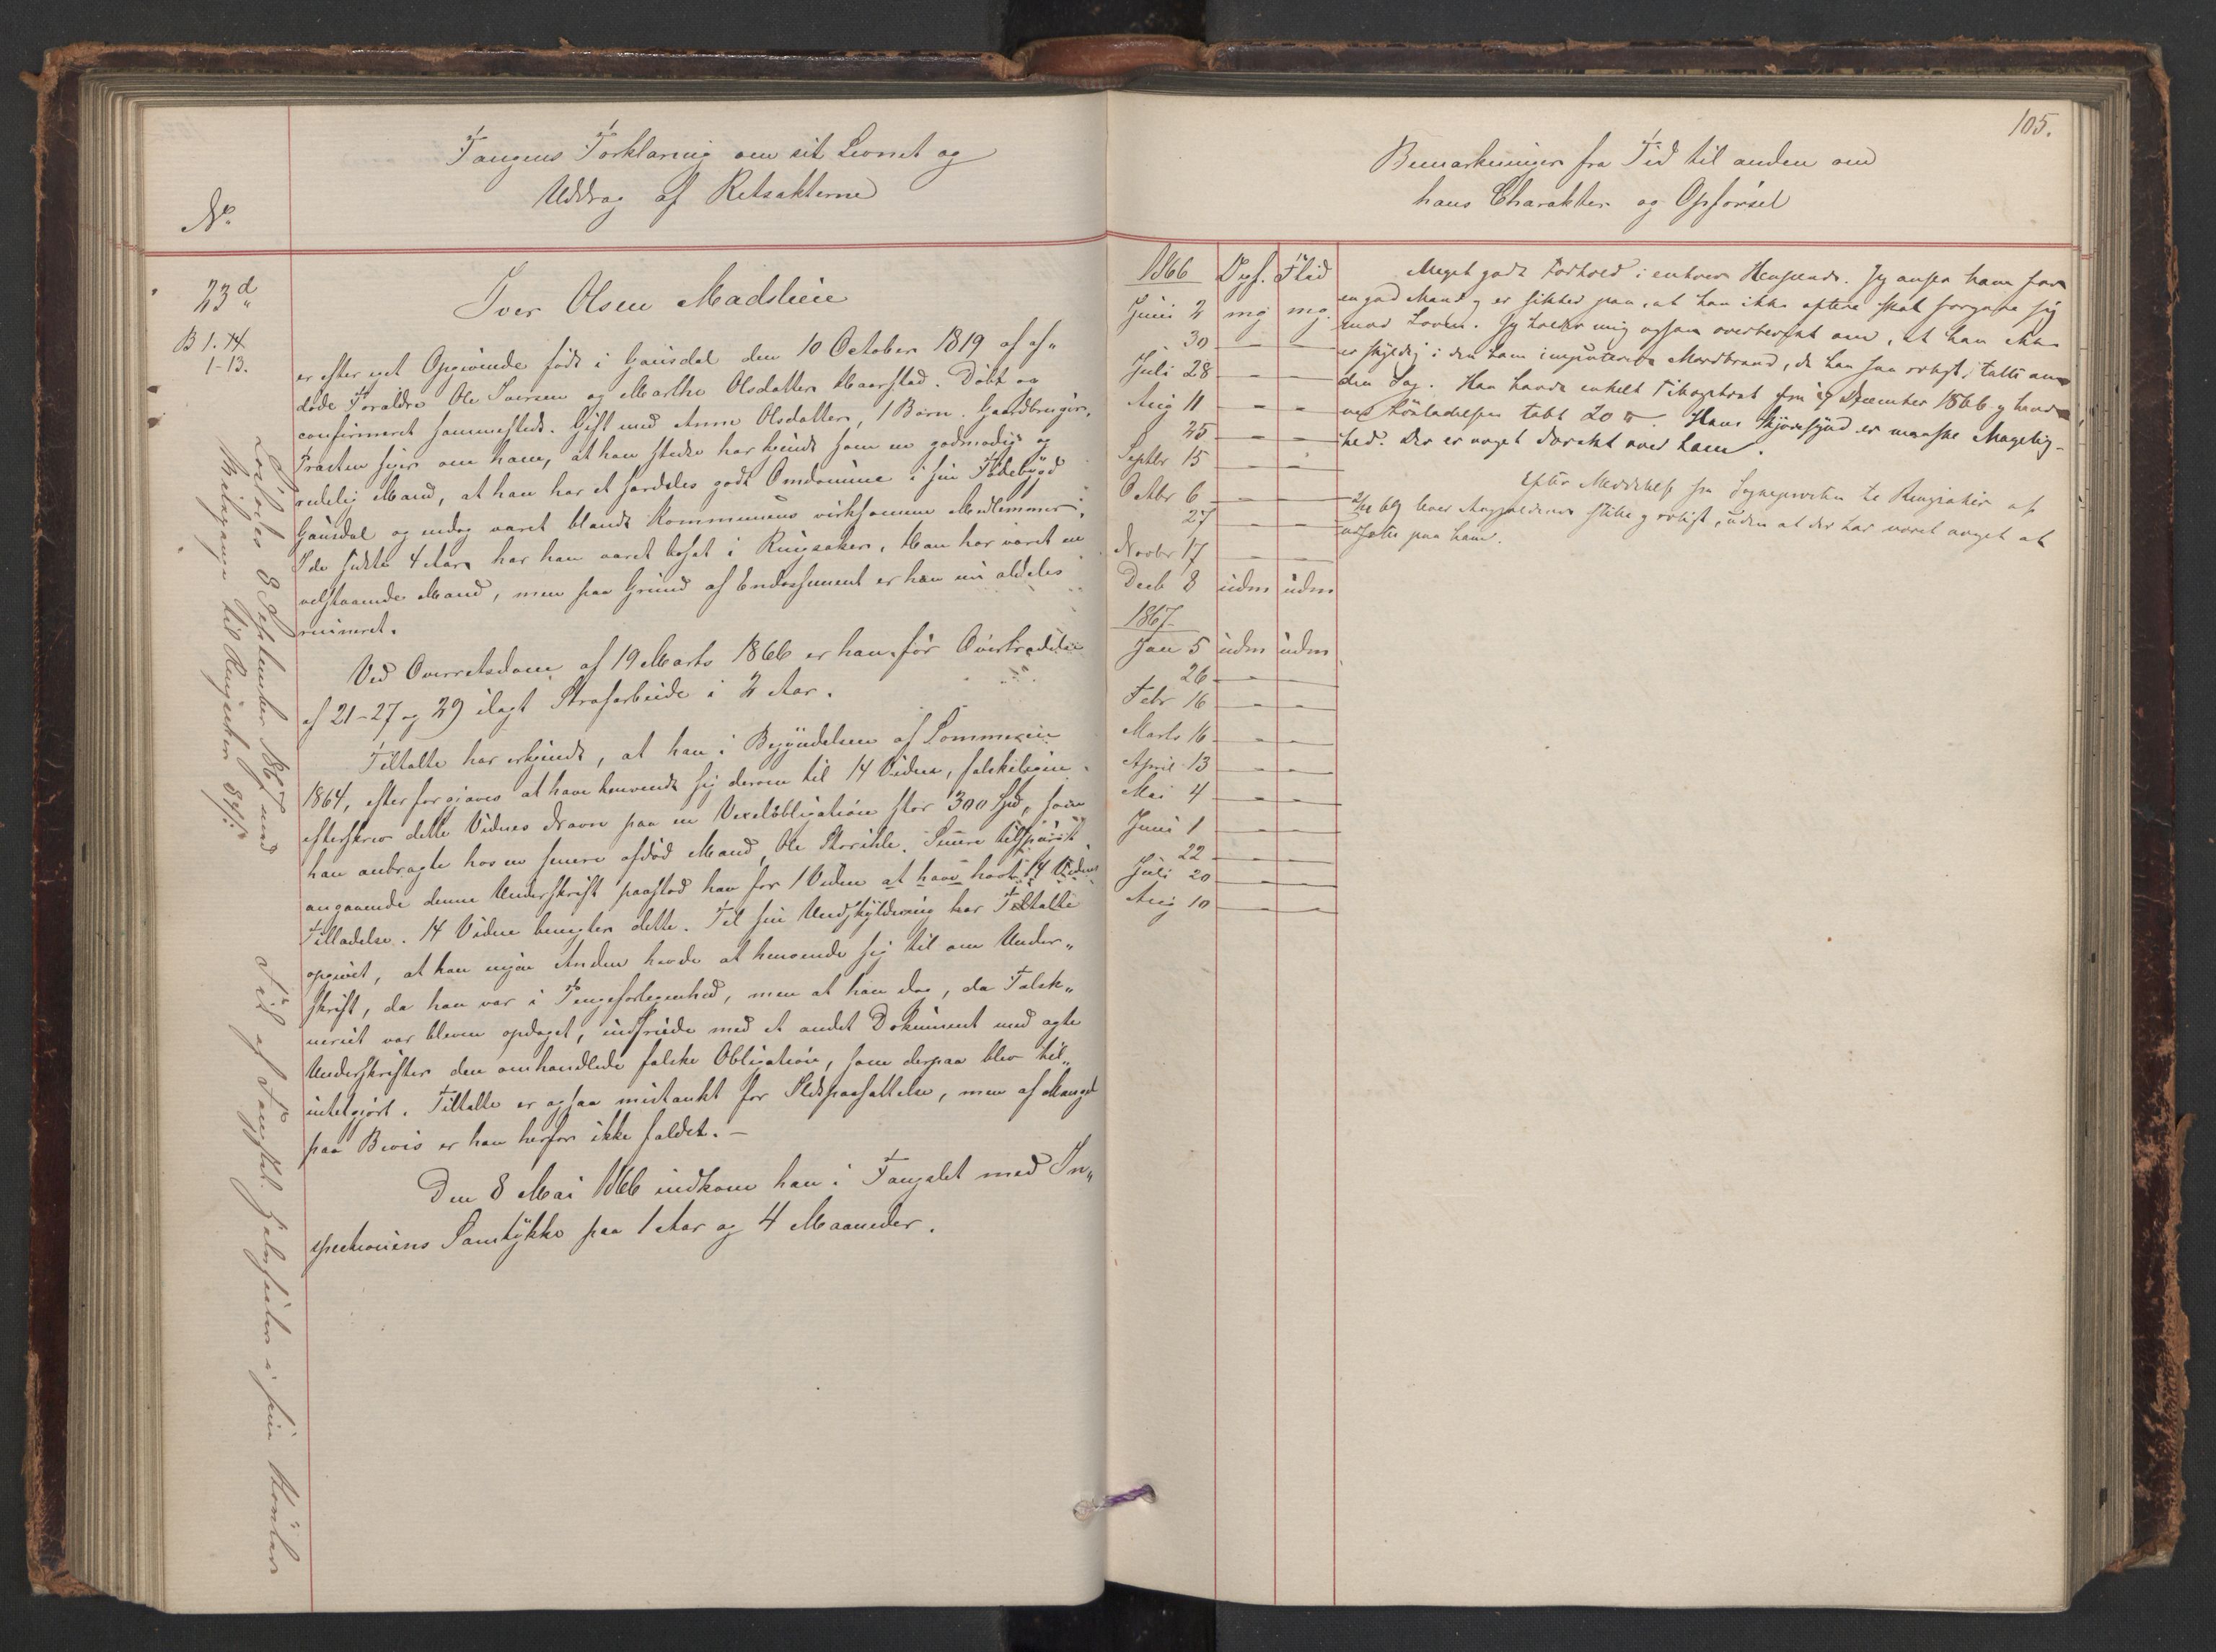 Fangens Forklaring om sit Levnet og
Uddrag af Retsakterne
No.
23d
B 1. 14.
1-13.
Iver Olsen Madslien
er efter eget Opgivende født i Gausdal den 10 October 1819 af af„
døde Forældre Ole Iversen og Marthe Olsdatter Haarstad. Døbt og
confirmeret sammesteds. Gift med Anne Olsdatter, 1 Barn. Gaardbruger.
Præsten siger om ham, at han stedse har kjendt ham som en godmodig og
redelig Mand, at han har et særdeles godt Omdømme i sin Fødebygd
Gausdal og endog været blandt Kommunens virksomme Medlemmer.
I de sidste 4 Aar har han været bosat i Ringsaker. Han har været en
velstaaende Mand, men paa Grund af Endossement er han nu aldeles
ruineret.
Ved Overretsdom af 19 Marts 1866 er han for Overtrædelse
af 21-27 og 29 ilagt Strafarbeide i 2 Aar.
Tiltalte har erkjendt, at han i Begyndelsen af Sommeren
1864, efter forgjæves at have henvendt sig derom til 14 Vidne, falskeligen
efterskrev dette Vidnes Navn paa en Vexelobligation stor 300 Spd, som
han anbragte hos en senere afdød Mand, Ole Storihle. Senere tilspurgt
angaaende denne Underskrift paastod han for 1 Vidne at have havt 14 Vidnes
Tilladelse. 14 Vidne benegter dette. Til sin Undskyldning har Tiltalte
opgivet, at han ingen Anden havde at henvende sig til om Under„
skrift, da han var i Pengeforlegenhed, men at han dog, da Falsk„
neriet var bleven opdaget, indfriede med et andet Dokument med ægte
Underskrifter den omhandlede falske Obligation, som derpaa blev til„
intetgjort. Tiltalte er ogsaa mistænkt for Ildspaasættelse, men af Mangel
paa Bevis er han herfor ikke fældet. –
Den 8 Mai 1866 indkom han i Fængslet med In„
spectionens Samtykke paa 1 Aar og 4 Maaneder.
Løslades 8 September 1867 med
til Ringsaker
af Fængslet
105.
Bemærkninger fra Tid til anden om
hans Charakter og Opførsel
1866 Opf. Flid
Juni 2 mg mg.
30 – –
Juli 28 – –
Aug 11 – –
25 – –
Septbr 15 – –
Octbr 6 – –
27 – –
Novbr 17 – –
Decb 8 udm udm
1867
Jan 5 udm udm
26 – –
Febr 16 – –
Marts 16 – –
April 13 – –
Mai 4 – –
Juni 1 – –
22 – –
Juli 20 – –
Aug 10 – –
Meget godt Forhold i enhver Henseende. Jeg anser ham for
en god Mand og er sikker paa, at han ikke oftere skal forgaa sig
mod Loven. Jeg holder mig ogsaa overbevist om, at han ikke
er skyldig i den ham imputerede Mordbrand, da han saa roligt talte om
den Sag. Han havde enkelt Vægttab fra 17 December 1866 og havde
ved Løsladelsen tabt 20 ℔. Hans er maaske Magelig-
hed. Der er noget Dorskt over ham.
Efter Meddelelse fra Sognepræsten til Ringsaker af
69 lever stille og roligt, uden at der har været noget at
udsætte paa ham.